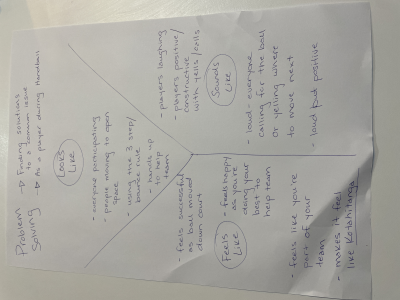 Problem Solving
→ Finding solutions
to a common issue
→ As a player during Handball
Looks
Like
- everyone participating
- people moving to open
space
- using the 3 step/
bounce rule
- hands up
to help
team
- players laughing
- players positive/
constructive
with yells/calls
Sounds
Like
- loud - everyone
calling for the ball
or yelling where
to move next
- loud but positive
Feels
Like
- feels successful
as ball moved
down court
- feels happy
as you're
doing your
best to
help team
- feels like you're
part of your
team
- makes it feel
like Kotahitanga